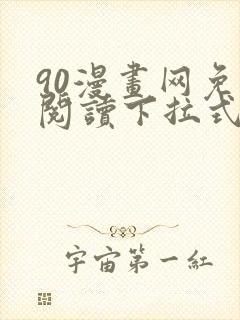 90漫畫网免
閱讀下拉式
宇宙第一紅